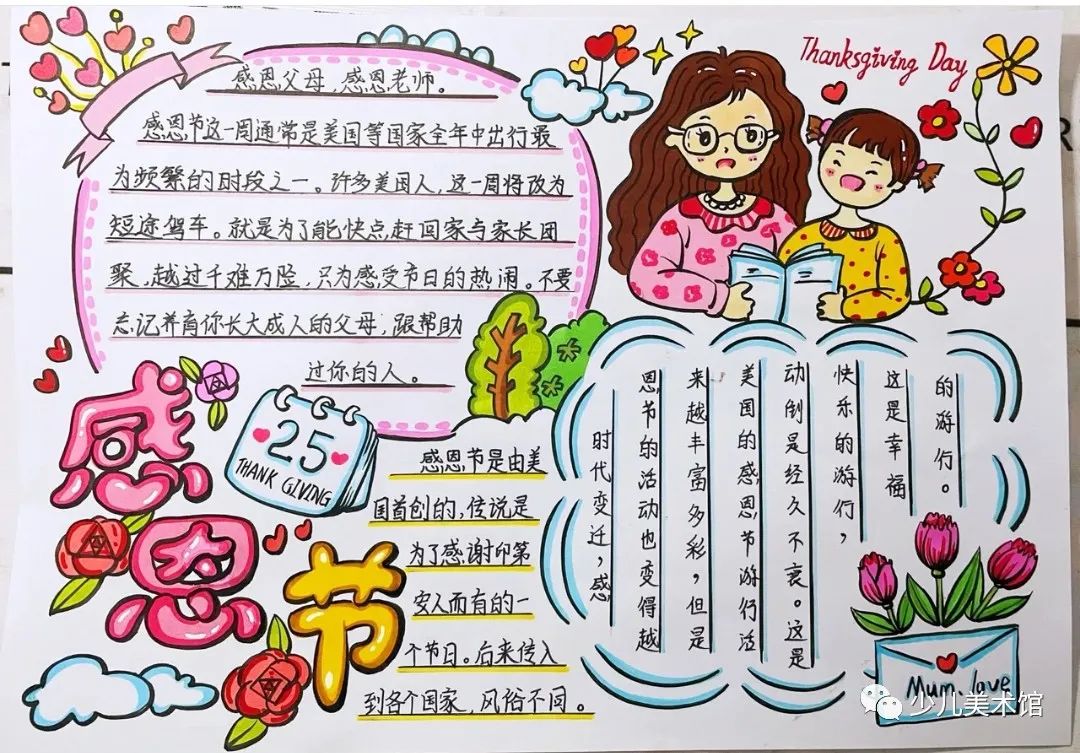 感恩父母，感恩老师。
感恩节这一周通常是美国等国家全年中出行最
为频繁的时段之一。许多美国人，这一周将改为
短途驾车。就是为了能快点赶回家与家长团
聚，越过千难万险，只为感受节日的热闹。不要
忘记养育你长大成人的父母，跟帮助
过你的人。
Thanksgiving Day
感恩节
25
THANK GIVING
感恩节是由美
国首创的，传说是
为了感谢印第
安人而有的一
个节日。后来传入
到各个国家，风俗不同。
时代变迁，感
恩节的活动也变得越
来越丰富多彩，但是
美国的感恩节游行活
动倒是经久不衰。这是
快乐的游行，
这是幸福
的游行。
Mum.love
少儿美术馆